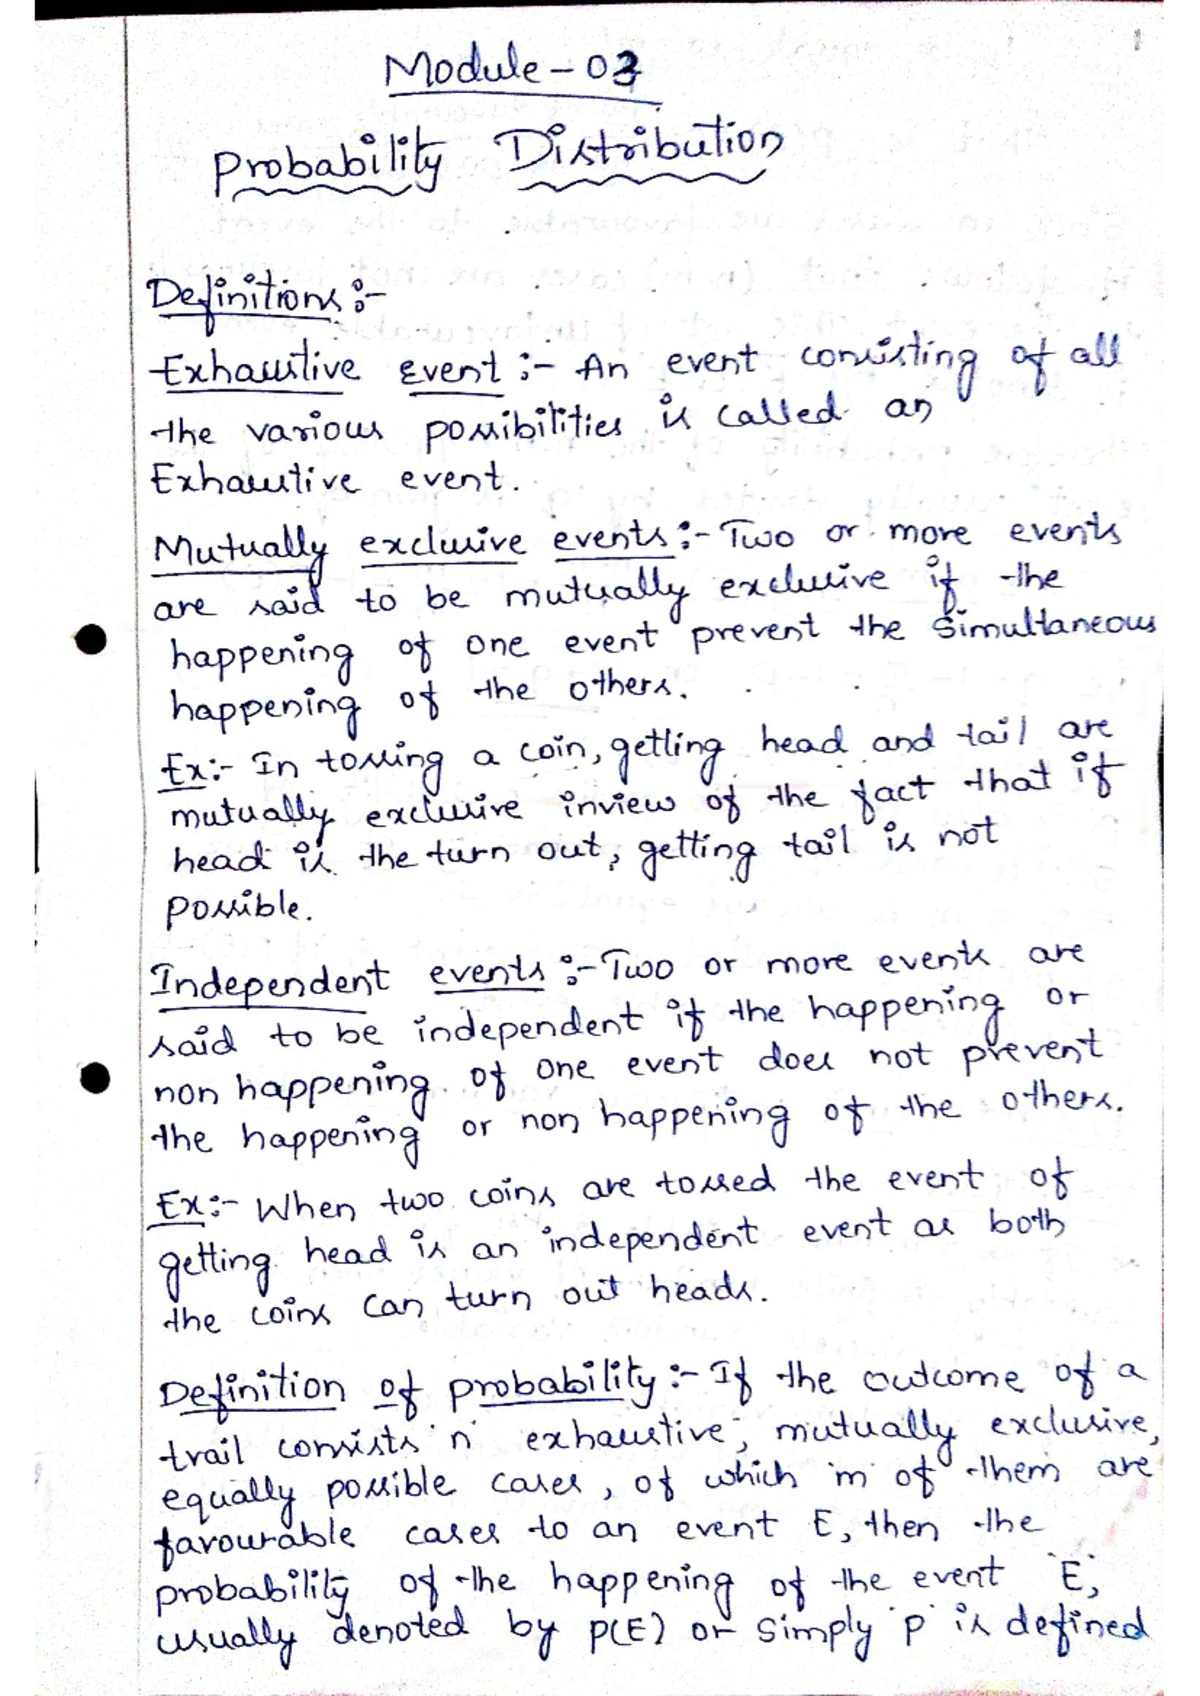 Module-03
Probability Distribution
Definitions :-
Exhaustive Event :- An event consisting of all
the various possibilities is called an
Exhaustive event.
Mutually exclusive events :- Two or more events
are said to be mutually exclusive if the
happening of one event prevent the simultaneous
happening of the others.
Ex:- In tossing a coin, getting head and tail are
mutually exclusive inview of the fact that if
head is the turn out, getting tail is not
possible.
Independent events :- Two or more events are
said to be independent if the happening or
non happening of one event does not prevent
the happening or non happening of the others.
Ex:- When two coins are tossed the event of
getting head is an independent event as both
the coins can turn out heads.
Definition of probability :- If the outcome of a
trail consists 'n' exhaustive, mutually exclusive,
equally possible cases, of which 'm' of them are
favourable cases to an event E, then the
probability of the happening of the event 'E',
usually denoted by P(E) or simply 'p' is defined